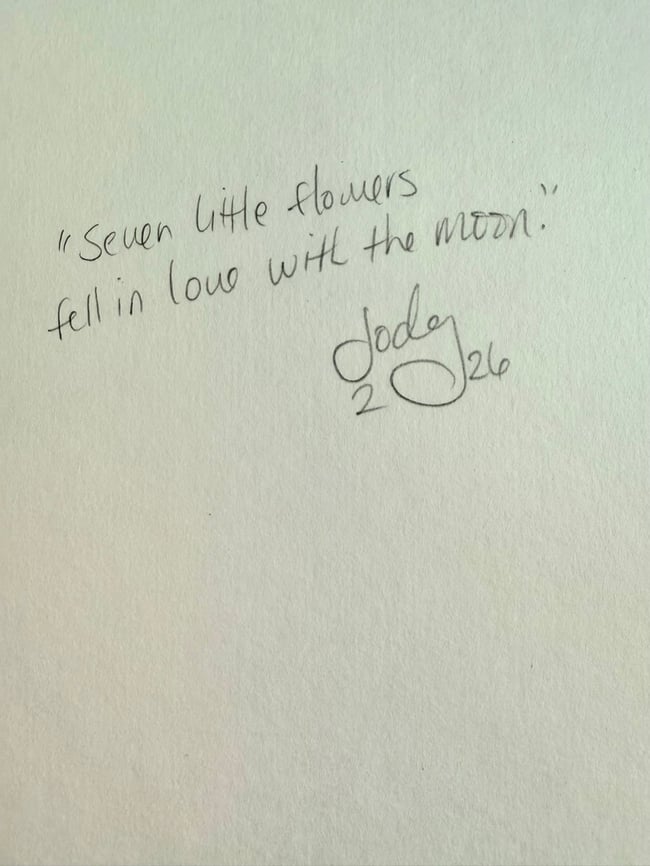 "Seven little flowers
fell in love with the moon."
Jody
2026